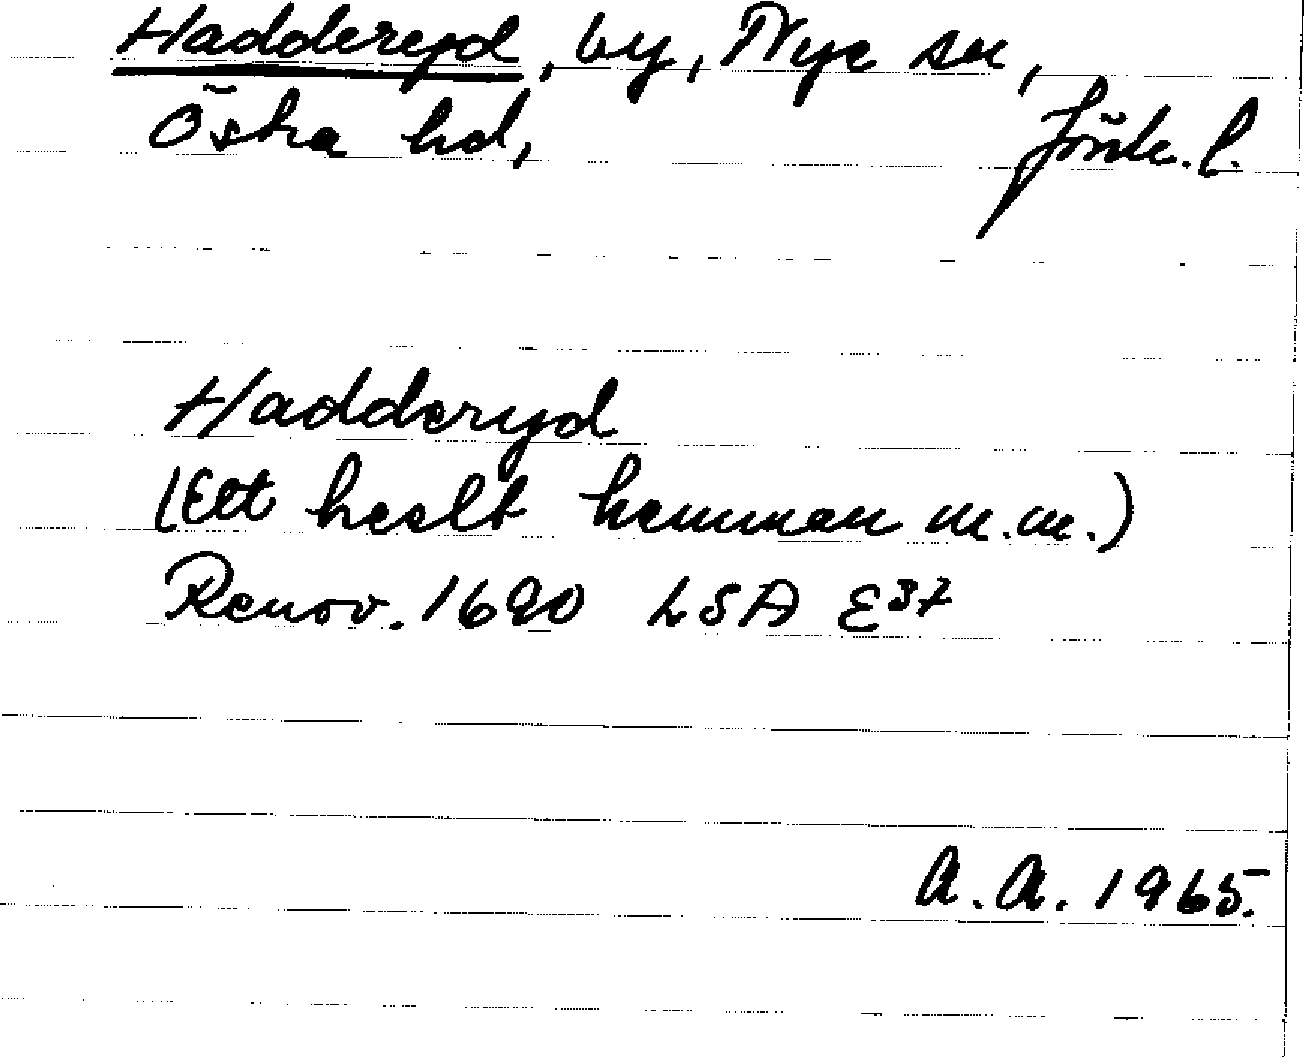 Hadderyd, by, Nye sn,
Östra hd, Jönk. l.
Hadderyd
(Ett heelt hemman m.m.)
Renov. 1690 LSA E37
A. A. 1965.